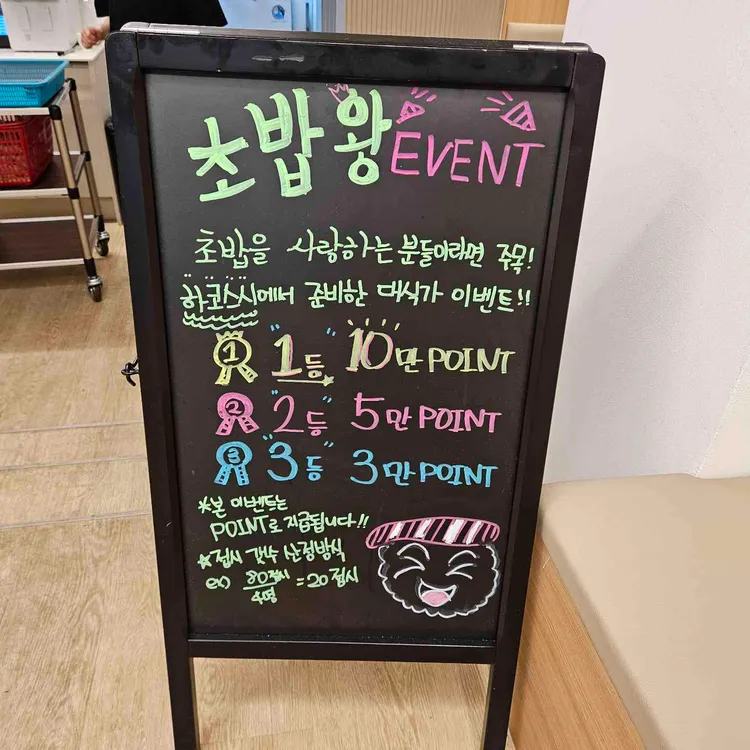 초밥왕 EVENT
초밥을 사랑하는 분들이라면 주목!
하코스시에서 준비한 대식가 이벤트!!
1 "1등" 10만 POINT
2 "2등" 5만 POINT
3 "3등" 3만 POINT
*본 이벤트는
POINT로 지급됩니다!!
★접시 갯수 산정방식
ex) 80접시/4명 = 20접시